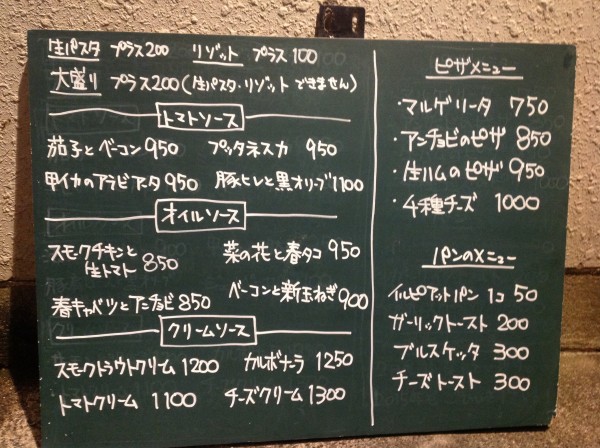 生パスタ プラス200 リゾット プラス100
大盛り プラス200(生パスタ・リゾット できません)
トマトソース
茄子とベーコン 950 プッタネスカ 950
甲イカのアラビアタ 950 豚ヒレと黒オリーブ 1100
オイルソース
スモークチキンと
生トマト 850 菜の花と春タコ 950
春キャベツとアンチョビ 850 ベーコンと新玉ねぎ 900
クリームソース
スモークトラウトクリーム 1200 カルボナーラ 1250
トマトクリーム 1100 チーズクリーム 1300
ピザメニュー
・マルゲリータ 750
・アンチョビのピザ 850
・生ハムのピザ 950
・4種チーズ 1000
パンのメニュー
イルピアットパン 1コ 50
ガーリックトースト 200
ブルスケッタ 300
チーズトースト 300